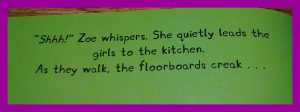 "Shhh!" Zoe whispers. She quietly leads the
girls to the kitchen.
As they walk, the floorboards creak . . .